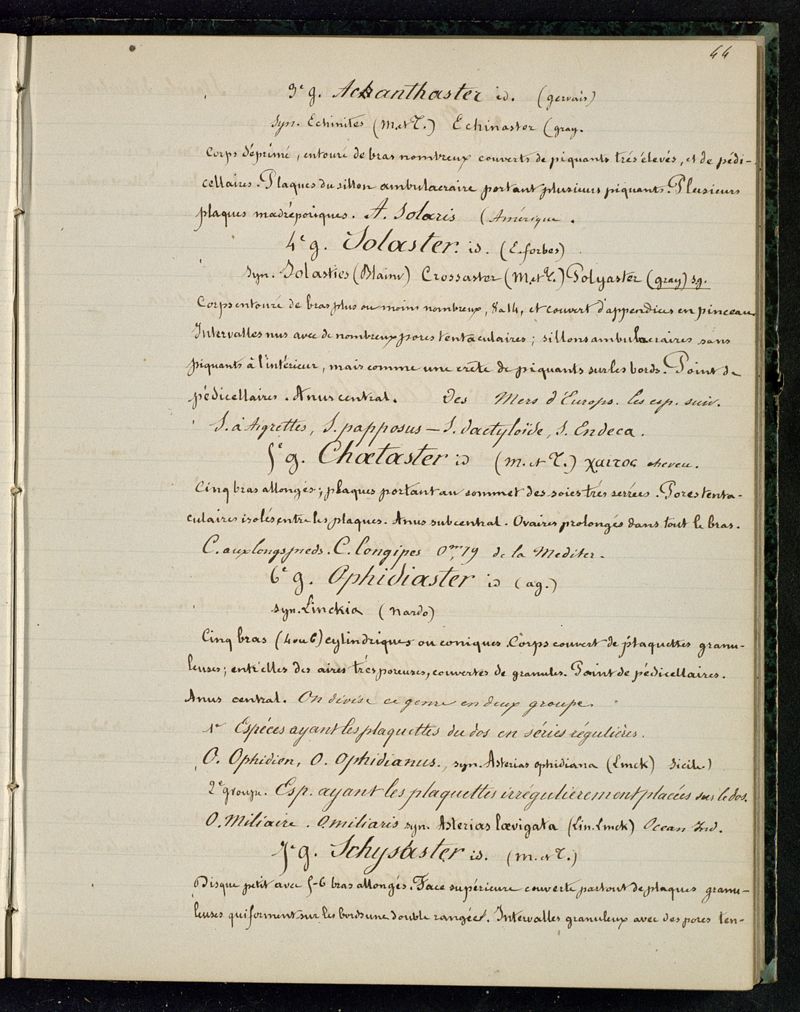 44
3e g. Acanthaster id. (gervais)
Syn. Echinites (M. et T.) Echinaster (gray.
Corps déprimé, entouré de bras nombreux couverts de piquants très élevés, et de pédi-
cellaires. Plaques du sillon ambulacraire portant plusieurs piquants. Plusieurs
plaques madréporiques. A. Solaris (Amérique.
4e g. Solaster. id. (E. forbes)
Syn. Solasties (Blainv) Crossaster (M. et T.) Polyaster (gray) sg.
Corps entouré de bras plus ou moins nombreux, 8 à 14, et couvert d'appendices en pinceau
Intervalles nus avec de nombreux pores tentaculaires; sillons ambulacraires sans
piquants à l'intérieur, mais comme une crête de piquants sur les bords. Point de
pédicellaires. Anus central. Des Mers d'Europ. les esp. suiv.
S. à Aigrettes, S. papposus — S. dactyloïde, S. Endeca.
5e g. Chœtaster id (M. et T.) χαιτος cheveu.
Cinq bras allongés; plaques portant au sommet des soies très serrées. Pores tenta-
culaires isolés entre les plaques. Anus subcentral. Ovaires prolongés dans tout le bras.
C. aux longs pieds. C. longipes 0m,19 de la Mediter.
6e g. Ophidiaster id (ag.)
syn. Linckia (Nardo)
Cinq bras (4 ou 6) cylindriques ou coniques. Corps couvert de plaquettes granu-
leuses; entr'elles des aires très poreuses, couvertes de granules. Point de pédicellaires.
Anus central. On divise ce genre en deux groupe.
1er Espéces ayant les plaquettes du dos en séries régulières.
O. Ophidien, O. Ophidianus., syn. Asterias ophidiana (Linck) Sicile)
2e groupe. Esp. ayant les plaquettes irrégulièrement placées sur le dos.
O. Miliaire. O. miliaris syn. Asterias lœvigata (Lin. Linck) Ocean Ind.
7e g. Schysaster id. (M. et T.)
Disque petit avec 5-6 bras allongés. Face supérieure couverte partout de plaques granu-
leuses qui forment sur les bords une double rangées. Intervalles granuleux avec des pores ten-